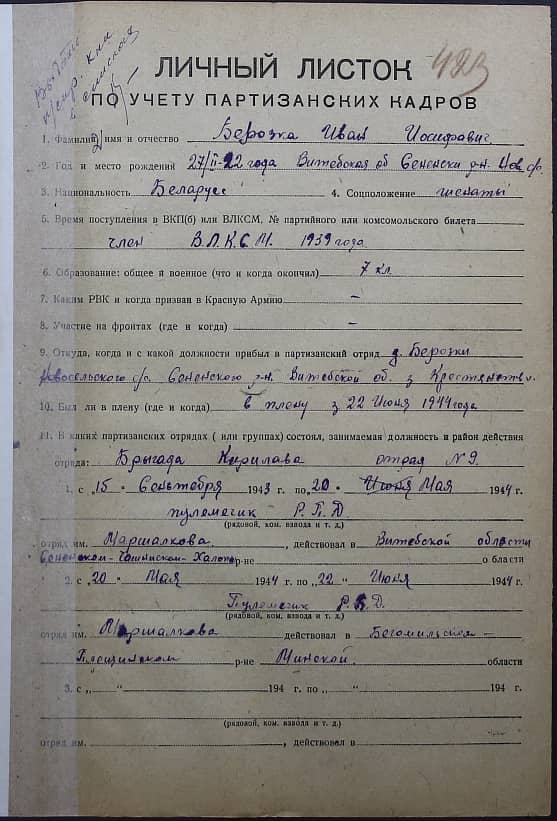 493
ЛИЧНЫЙ ЛИСТОК
ПО УЧЕТУ ПАРТИЗАНСКИХ КАДРОВ
1. Фамилия, имя и отчество Берозка Иван Иосифович
2. Год и место рождения 27/II-22 года Витебская об Сененски р-н.
3. Национальность Беларусс 4. Соцположение женаты
5. Время поступления в ВКП(б) или ВЛКСМ, № партийного или комсомольского билета
член В.Л.К.С.М. 1939 года
6. Образование: общее й военное (что и когда окончил) 7 кл.
7. Каким РВК и когда призван в Красную Армию –
8. Участие на фронтах (где и когда) –
9. Откуда, когда и с какой должности прибыл в партизанский отряд д. Берозки
Новосельского с/с. Сененского р-н. Витебской об. з
10. Был ли в плену (где и когда) в плену з 22 Июня 1944 года
11. В каких партизанских отрядах ( или группах) состоял, занимаемая должность и район действия
отряда: Брыгада Кирилава отрад N 9.
1. с „15 " Сентебря 1943 г. по „20 " Июня Мая 1944 г.
пулемегик Р.П.Д
(рядовой, ком. взвода и т. д.)
отряд им. Маршалкова , действовал в Витебской области
р-не о бласти
2. с „20 " Мая 1944 г. по „22 " Июня 1944 г.
Пулемегик Р.П.Д.
(рядовой, ком. взвода и т. д.)
отряд им. Маршалкова действовал в Бегомильском –
Плещинском р-не Минской. области
3. с „ " 194 г. по „ " 194 г.
(рядовой, ком. взвода и т. д.)
отряд им. , действовал в